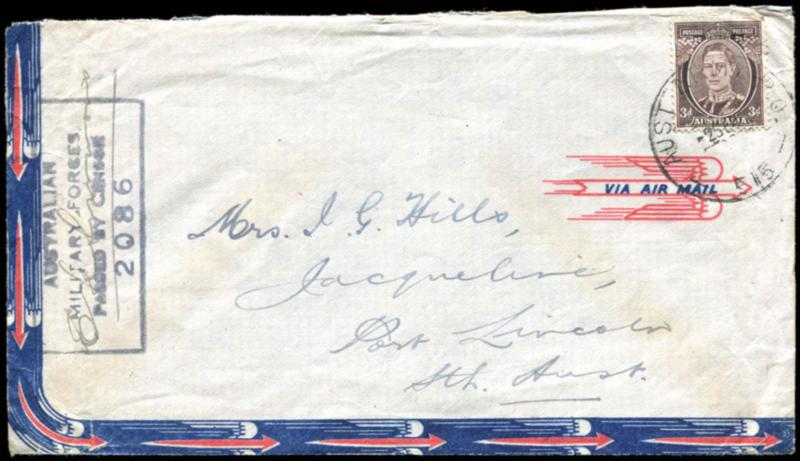 POSTAGE POSTAGE
3d 3d
AUSTRALIA
AUST
VIA AIR MAIL
AUSTRALIAN
MILITARY FORCES
PASSED BY CENSOR
2086
Mrs. I. G. Hills,
Jacqueline,
Port Lincoln
Sth. Aust.